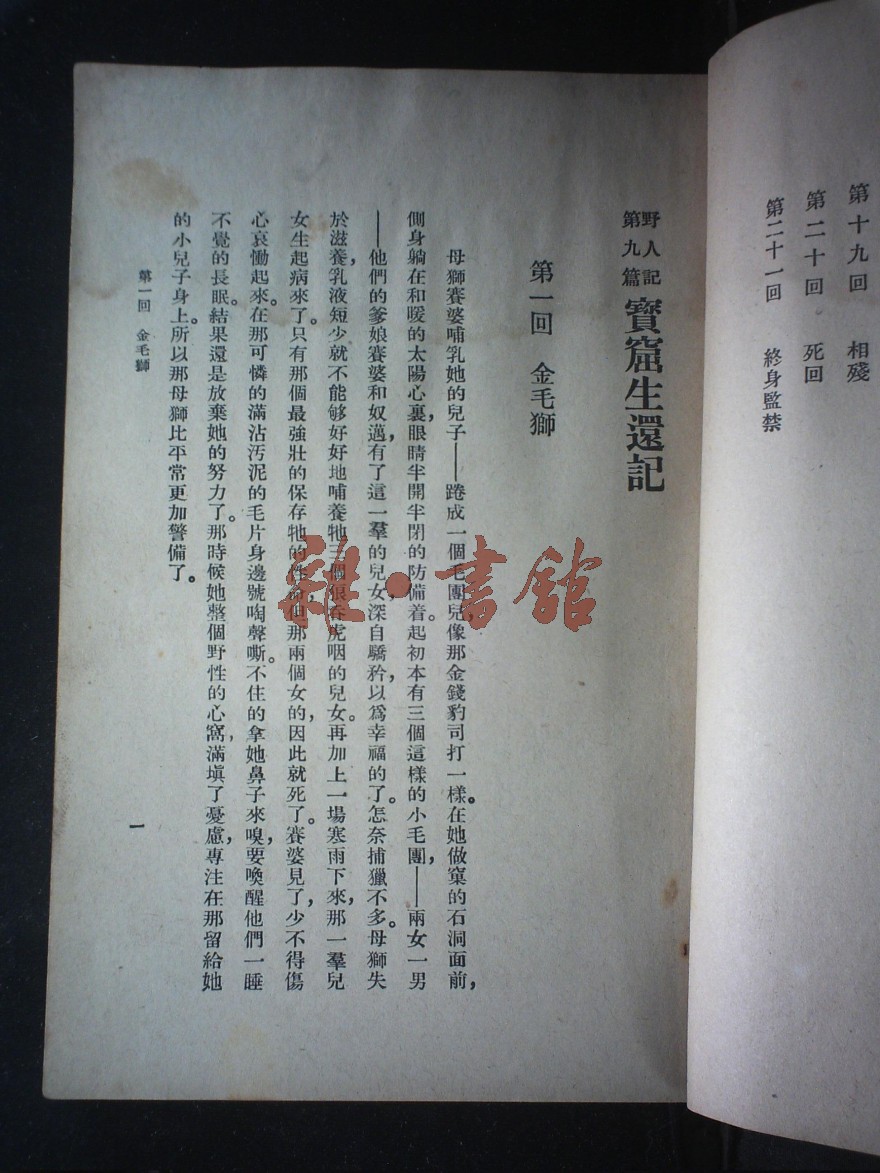 第十九回　相殘
第二十回　死回
第二十一回　終身監禁
野人記
第九篇
寶窟生還記
第一回　金毛獅
母獅賽婆哺乳她的兒子——踡成一個毛團兒像那金錢豹司打一樣。在她做窠的石洞面前，
側身躺在和暖的太陽心裏，眼睛半開半閉的防備着。起初本有三個這樣的小毛團——兩女一男
——他們的爹娘賽婆和奴邁，有了這一羣的兒女，深自驕矜，以爲幸福的了。怎奈捕獵不多。母獅失
於滋養，乳液短少就不能够好好地哺養牠三個狼吞虎咽的兒女。再加上一場寒雨下來，那一羣兒
女生起病來了。只有那個最強壯的保存牠的性命，但那兩個女的，因此就死了。賽婆見了，少不得傷
心哀慟起來。在那可憐的滿沾汚泥的毛片身邊號咷聲嘶。不住的拿她鼻子來嗅，要喚醒他們一睡
不覺的長眠。結果還是放棄她的努力了。那時候她整個野性的心窩，滿塡了憂慮，專注在那留給她
的小兒子身上。所以那母獅比平常更加警備了。
第一回　金毛獅
一
雜·書館